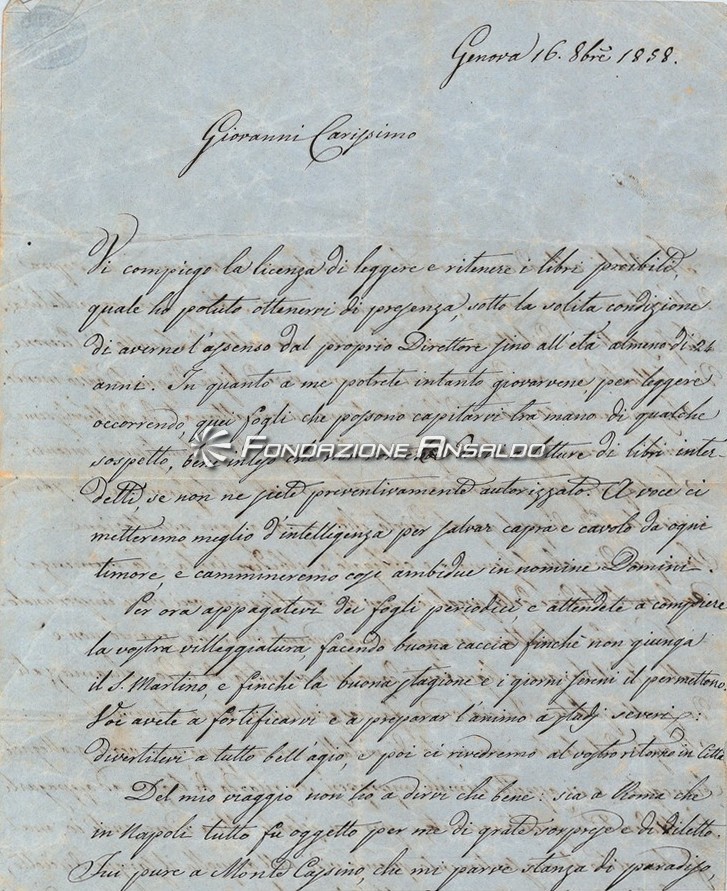 Genova 16. 8bre 1858.
Giovanni Carissimo
Vi compiego la licenza di leggere e ritenere i libri proibiti,
quale ho potuto ottenervi di presenza, sotto la solita condizione
di averne l'assenso dal proprio Direttore sino all'età almeno di 24
anni. In quanto a me potrete intanto giovarvene per leggere
occorrendo, quei fogli che possono capitarvi tra mano di qualche
sospetto, ben inteso che non letture di libri inter-
detti, se non ne siete preventivamente autorizzato. A voce ci
metteremo meglio d'intelligenza per salvar capra e cavolo da ogni
timore, e cammineremo così ambidue in nomine Domini.
Per ora appagatevi dei fogli periodici, e attendete a compiere
la vostra villeggiatura, facendo buona caccia finchè non giunga
il S. Martino, e finchè la buona stagione e i giorni sereni il permettono.
Voi avete a fortificarvi e a preparar l'animo a studj severi:
divertitevi a tutto bell'agio, e poi ci rivedremo al vostro ritorno in Città
Del mio viaggio non ho a dirvi che bene: sia a Roma che
in Napoli tutto fu oggetto per me di grate sorprese e di diletto.
Fui pure a Monte Cassino, che mi parve stanza di paradiso,
FONDAZIONE ANSALDO